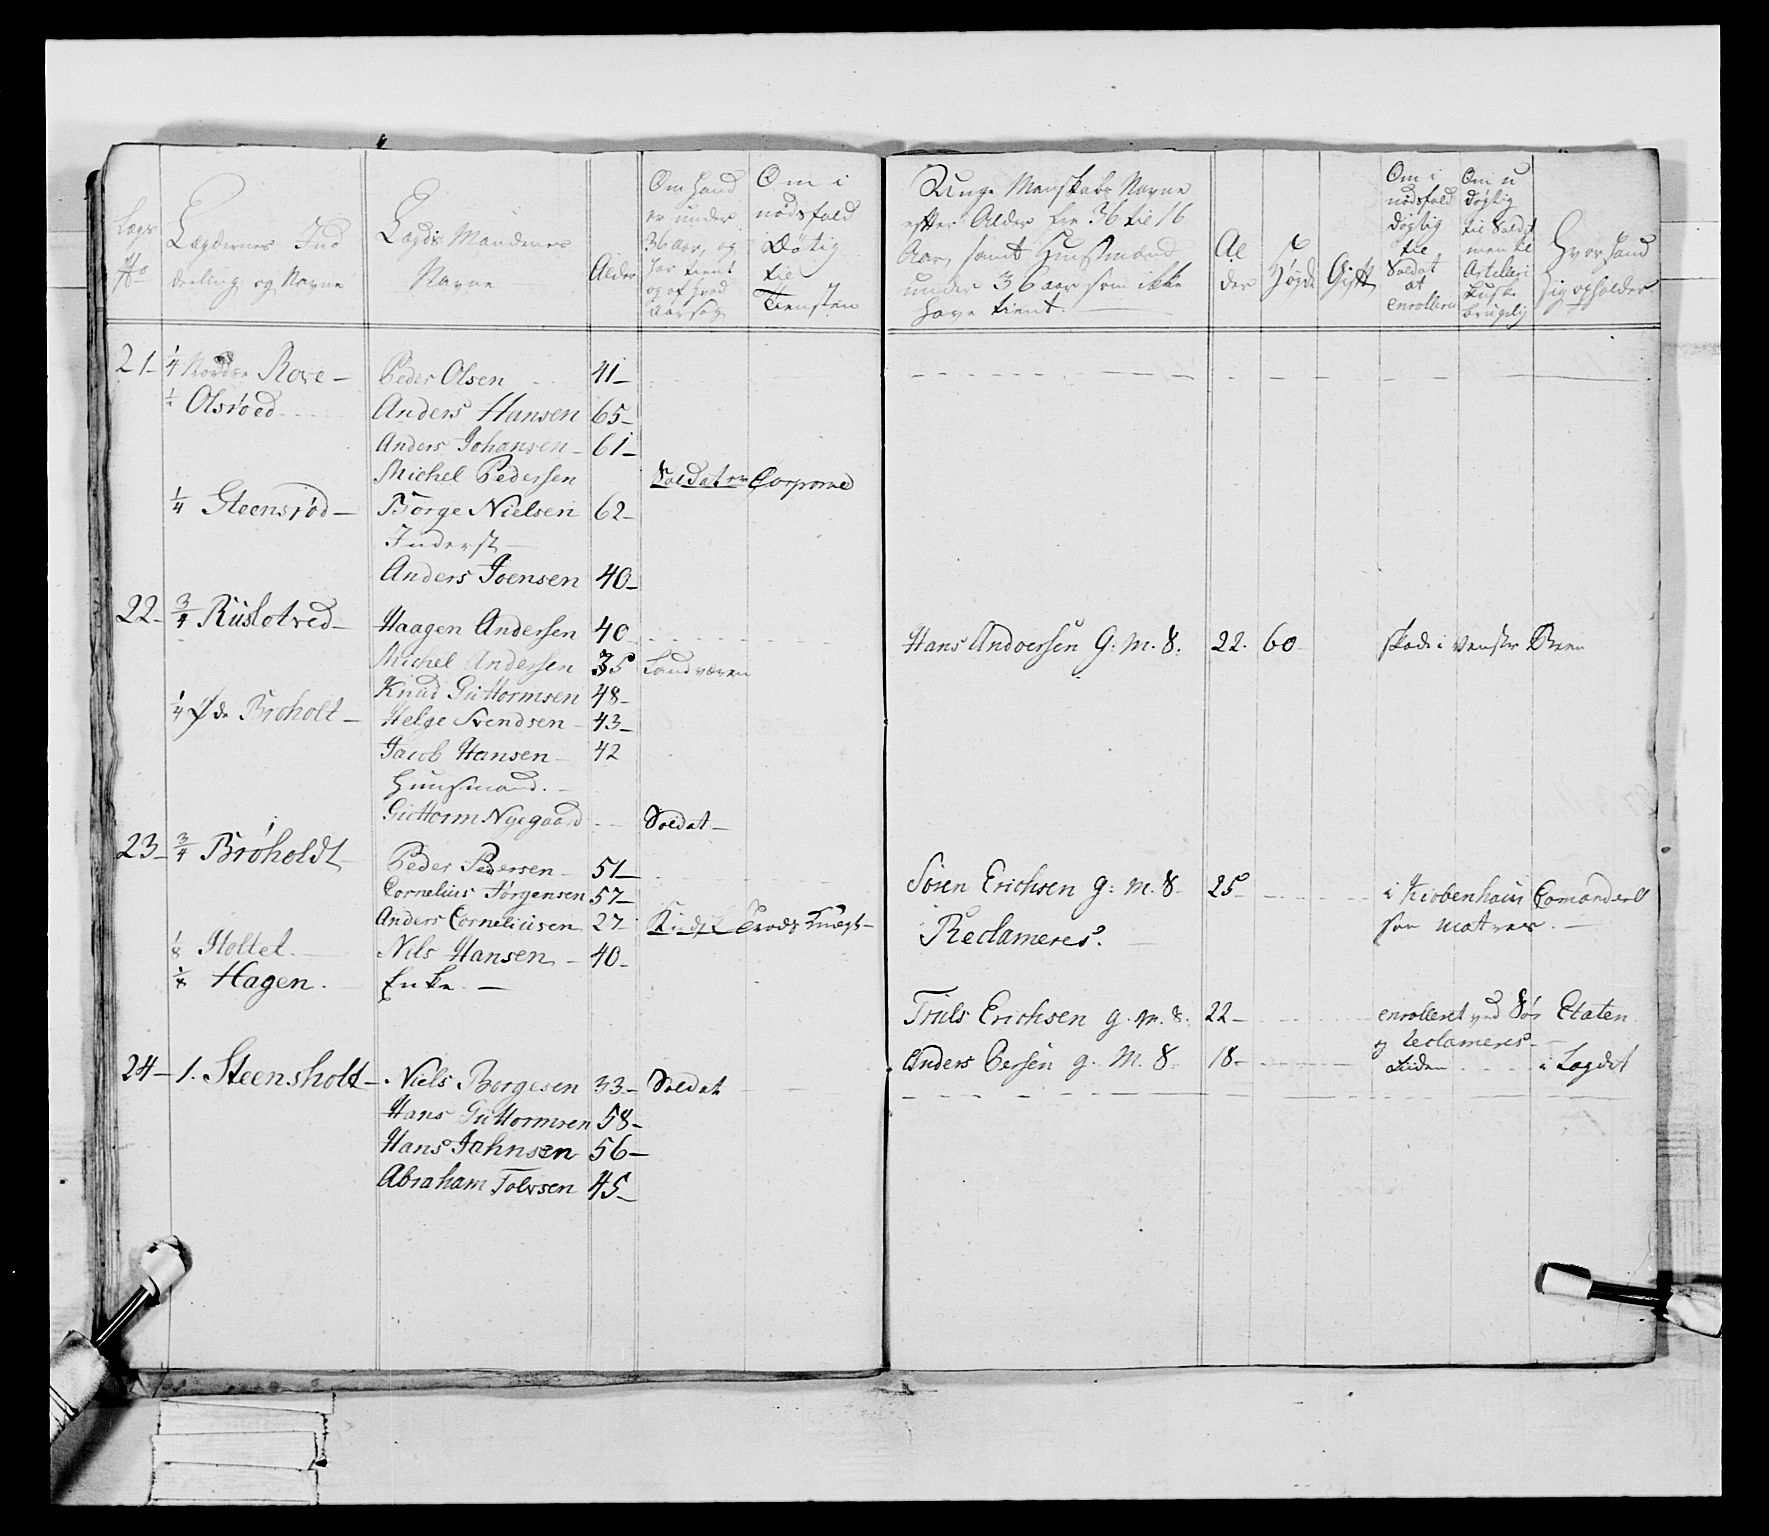 Lægs No
Lægdernes Ind
deeling og Navne
Lægds Mandenes
Navne
Alder
Om hand
er under
36 Aar, og
har tient
og af hvad
Aarsag
Om i
nødsfald
Døgtig
til
Tiensten
Unge Manskabs Navne
efter Alder fra 36 til 16
Aar, samt Huusmænd
under 36 aar som ikke
have tient.
Al
der
Høyde
Gift
Om i
nødsfald
Døgtig
til
Soldat
at
enrollere
Om u
døgtig
til Soldat
men til
Artilleri
Kusk
brugelig
Hvor hand
sig opholder
21 - 1/4 Nordre Bove - Peder Olsen 41 -
Olsrøed Anders Hansen 65 -
Anders Johansen - 61 -
Michel Pedersen Soldat Corporal
1/4 Steensrød - Børge Nielsen 62 -
Inderst -
Anders Joensen 40 -
22 - 3/4 Ruslotred - Haagen Andersen 40 Hans Andersen G: M. S. 22. 60 skade i venster Been
Michel Andersen 35 Landværen
Knud Guttormsen 48 -
1/4 Broholt - Helge Svendsen - 43 -
Jacob Hansen - 42
Huusmand. -
Guttorm Nyegaard Soldat -
23 - 3/4 Brøholdt Peder Pedersen - 51 -
Cornelius Jørgensen 57 - Søren Erichsen g: M. S 25 - i Kiøbenhavn Comanderet
Anders Corneliusen 27 - Reclameres. som Matros. -
1/8 Holtet. Nils Hansen - 40 -
1/8 Hagen. Enke. -
Truls Erichsen g. M. S. 22 - enrolleret ved Søe Etaten
og reclameres -
24 - 1. Steensholt - Niels Borgesen 33 - Soldat Anders Persen g. M. S. 18 - Liden i Lægdet
Hans Guttormsen 58 -
Hans Johnsen 56 -
Abraham Tolvsen 45 -